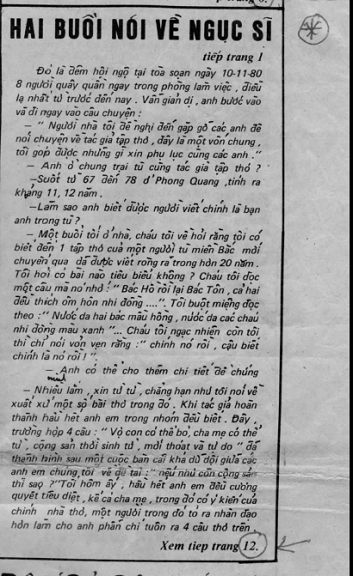 HAI BUỔI NÓI VỀ NGỤC SĨ
tiếp trang 1
Đó là đêm hội ngộ tại tòa soạn ngày 10-11-80
8 người quây quần ngay trong phòng làm việc, điều
lạ nhất từ trước đến nay. Vẫn giản dị, anh bước vào
và đi ngay vào câu chuyện :
— " Người nhà tôi đề nghị đến gặp gỡ các anh để
nói chuyện về tác giả tập thơ, đây là một vốn chung,
tôi góp được những gì xin phụ lục cùng các anh."
— Anh ở chung trại tù cùng tác giả tập thơ ?
—Suốt từ 67 đến 78 ở Phong Quang, tính ra
khảng 11, 12 năm.
—Làm sao anh biết được người viết chính là bạn
anh trong tù ?
— Một buổi tối ở nhà, cháu tôi về hỏi rằng tôi có
biết đến 1 tập thơ của một người tù miền Bắc mới
chuyển qua đã được viết ròng rã trong hơn 20 năm.
Tôi hỏi có bài nào tiêu biểu không ? Cháu tôi đọc
một câu mà nó nhớ : " Bác Hồ rồi lại Bác Tôn, cả hai
đều thích ôm hôn nhi đồng ....". Tôi buột miệng đọc
theo :" Nước da hai bác màu hồng, nước da các cháu
nhi đồng màu xanh "... Cháu tôi ngạc nhiên còn tôi
thì chỉ nói vỏn vẹn rằng :" chính nó rồi, cậu biết
chính là nó rồi ! ".
— Anh có thể cho thêm chi tiết để chứng
minh
— Nhiều lắm, xin từ từ, chẳng hạn như tôi nói về
xuất xứ một số bài thơ trong đó. Khi tác giả hoàn
thành hầu hết anh em trong nhóm đều biết. Đây,
trường hợp 4 câu : " Vợ con có thể bỏ, cha mẹ có thể
từ, cộng sản thời sinh tử, mới thoát và tự do " đã
thành hình sau một cuộc bàn cãi khá dữ dội giữa các
anh em chúng tôi về đề tài :" nếu như còn cộng sản
thì sao ?"Tối hôm ấy, hầu hết anh em đều cương
quyết tiêu diệt, kể cả cha mẹ, trong đó có ý kiến của
chính nhà thơ, một người trong đó tỏ ra nhân đạo
hơn làm cho anh phấn chí tuôn ra 4 câu thơ trên
Xem tiep trang 12.